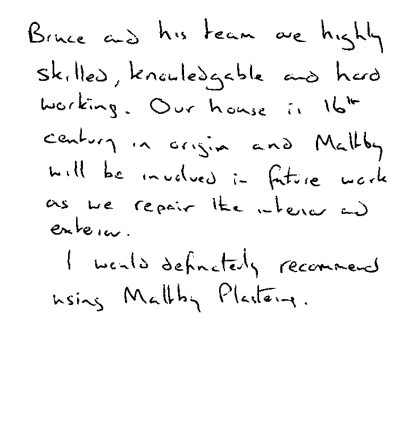 Bruce and his team are highly
skilled, knowledgable and hard
working. Our house is 16th
century in origin and Maltby
will be involved in future work
as we repair the interior and
exterior.
I would definately recommend
using Maltby Plastering.